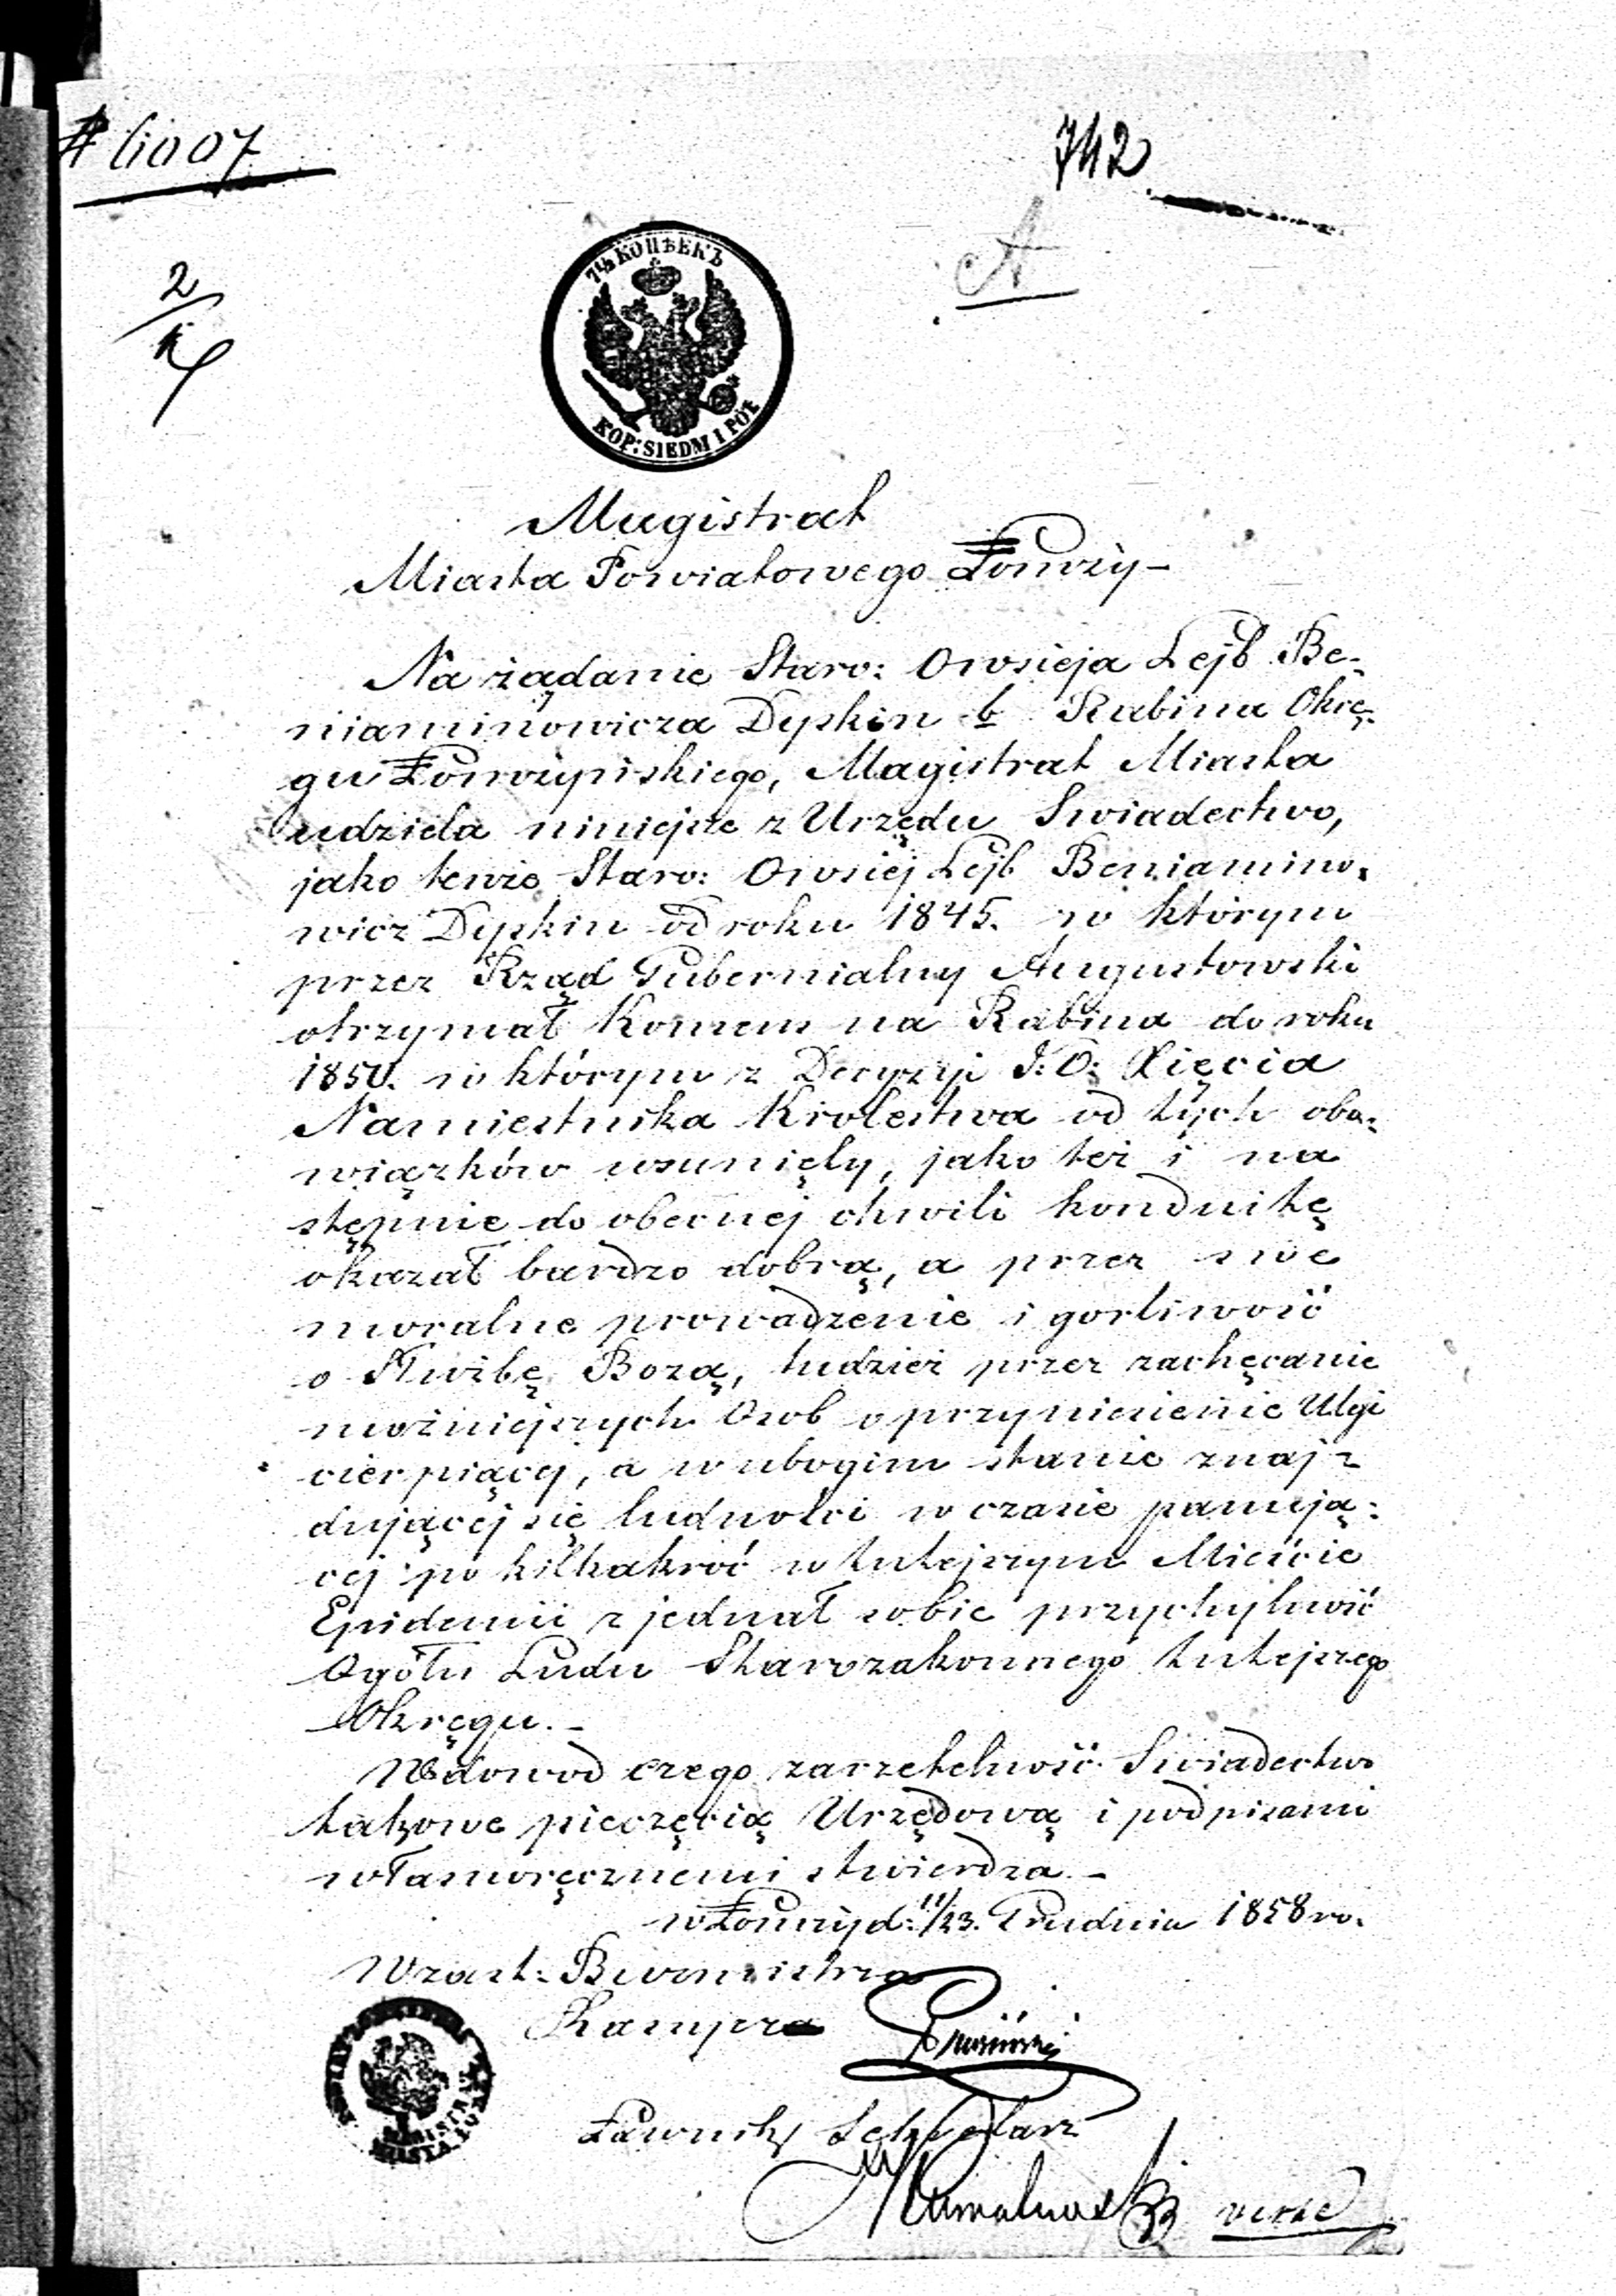 # 6007
742
A
2
7½ КОПѢЕКЪ
KOP: SIEDM I PÓŁ
Magistrat
Miasta Powiatowego Łomży –
Na żądanie Staro: Owsieja Lejb Be-
niaminowicza Dypkin b Rabina Okrę-
gu Łomżyńskiego, Magistrat Miasta
udziela niniejsze z Urzędu Swiadectwo,
jako tenże Staro: Owsiej Lejb Beniamino-
wicz Dypkin od roku 1845. w którym
przez Rząd Gubernialny Augustowski
otrzymał Konsens na Rabina do roku
1850. w którym z Decyzyi J: O: Xięcia
Namiestnika Królestwa od tych obo-
wiązków usunięty, jako też i na
stępnie do obecnej chwili konduitę
okazał bardzo dobrą, a przez swe
moralne prowadzenie i gorliwość
o Służbę Bozą, tudzież przez zachęcanie
możniejszych Osob o przyniesienie Ulgi
cierpiącej, a w ubogim stanie znaj-
dującej się ludności w czasie panują-
cej po kilkakroć w tutejszym Mieście
Epidemii zjednał sobie przychylność
Ogółu Ludu Starozakonnego tutejszego
Okręgu. –
W dowod czego zarzetelność Swiadectwo
takowe pieczęcią Urzędową i podpisami
własnoręcznemi stwierdza –
w Łomży d: 11/23. Grudnia 1858 ro.
W zast: Burmistrza
Ławnik Sekretarz
MAGISTRAT
MIASTA
verte